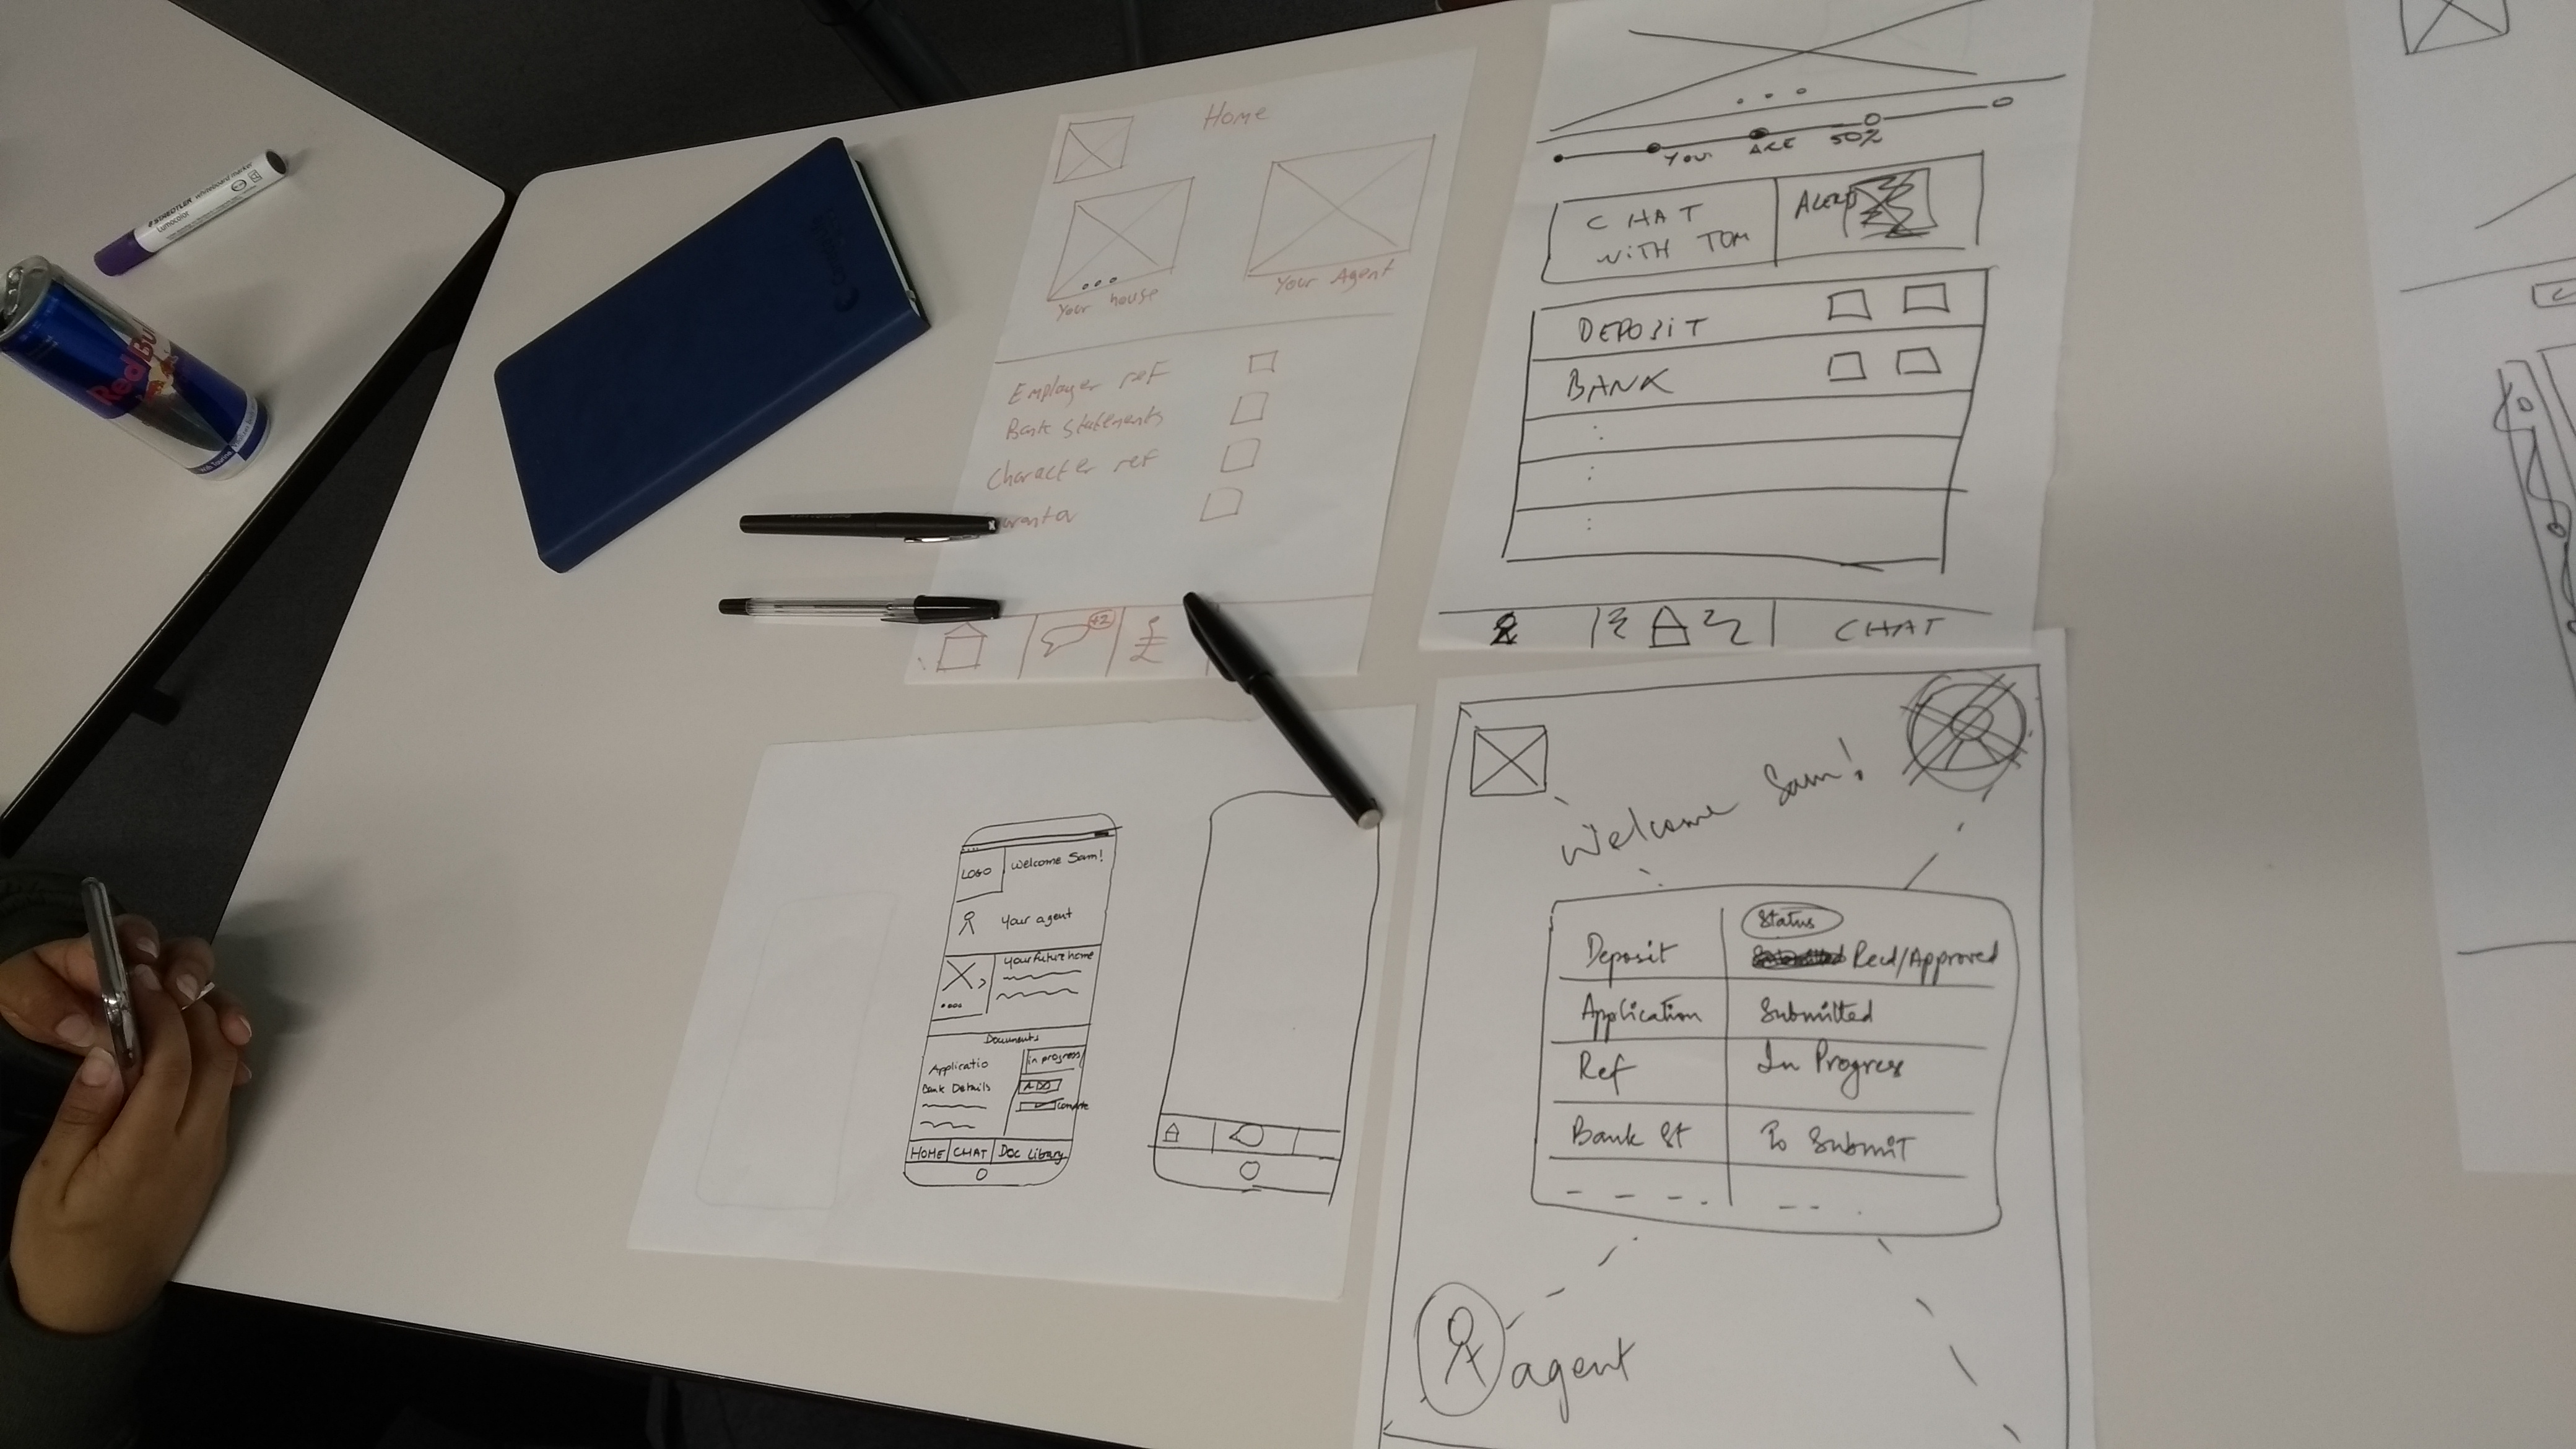 STAEDTLER
Lumocolor
whiteboard marker
RedBull
Home
Your house
Your Agent
Employer ref
Bank statements
Character ref
+2
£
YOU ARE 50%
CHAT
WITH TOM
DEPOSIT
BANK
CHAT
LOGO
Welcome Sam!
Your agent
Your future home
Documents
Applicatio
in progress
Bank Details
ADD
HOME
CHAT
Doc Library
Welcome Sam!
Status
Deposit
Recd/Approved
Application
Submitted
Ref
In Progress
Bank St
To Submit
agent